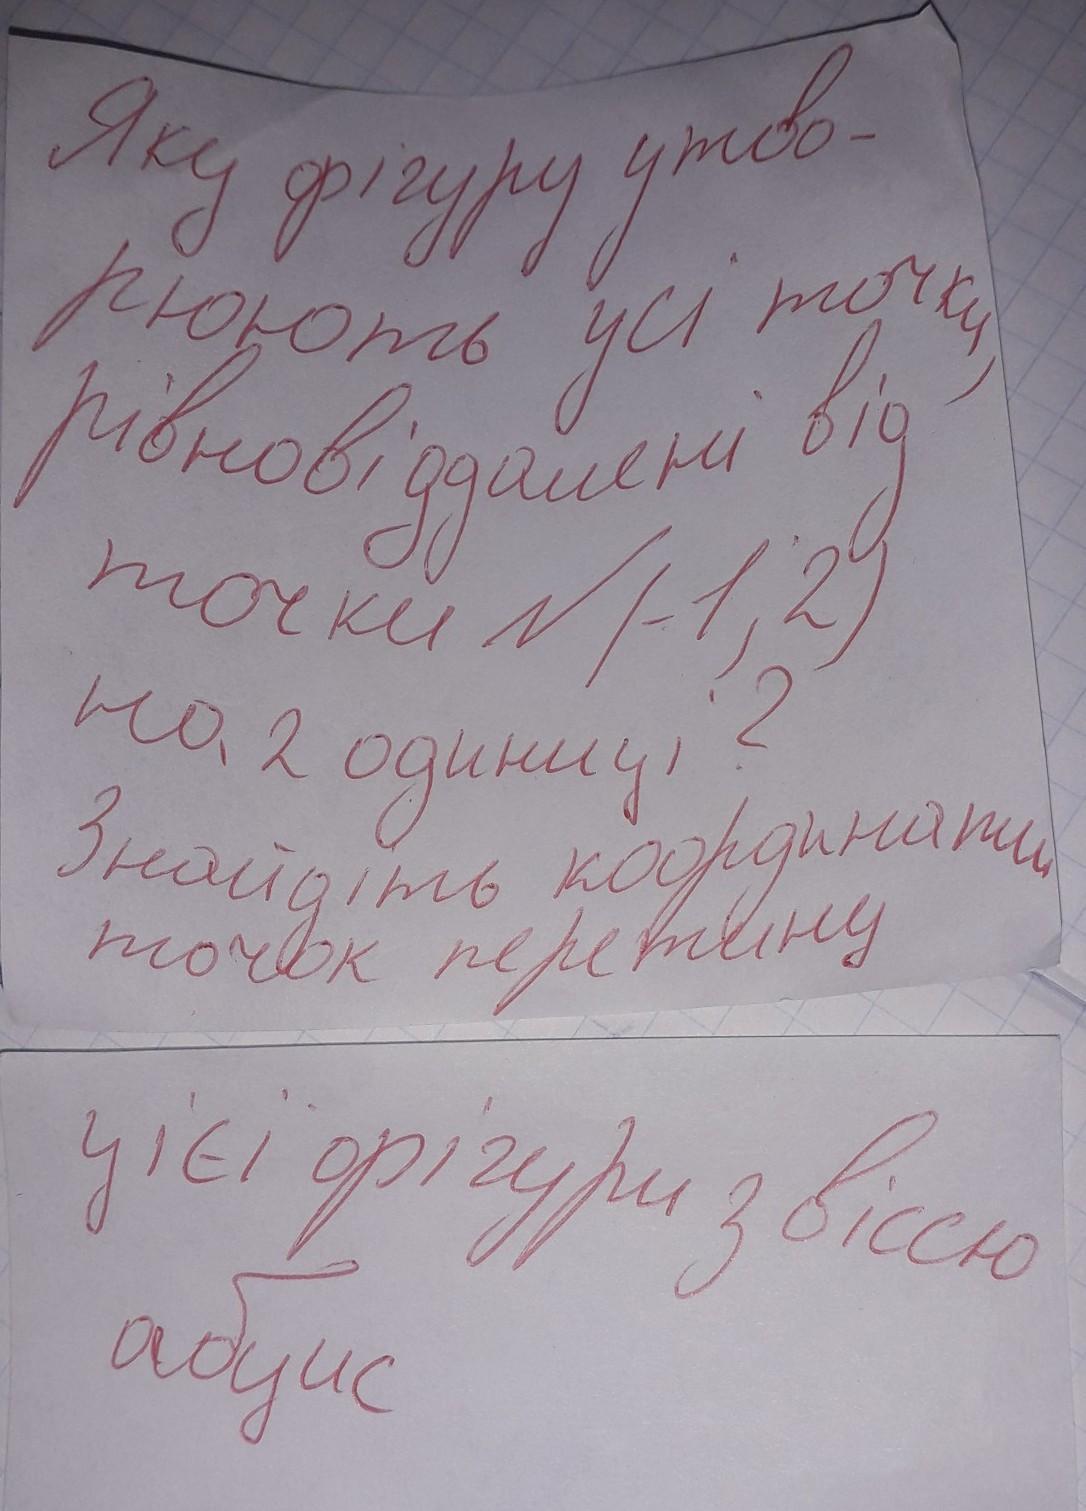 Яку фігуру утво-
рюють усі точки,
рівновіддалені від
точки N(-1; 2)
на 2 одиниці?
Знайдіть координати
точок перетину
цієї фігури з віссю
абцис